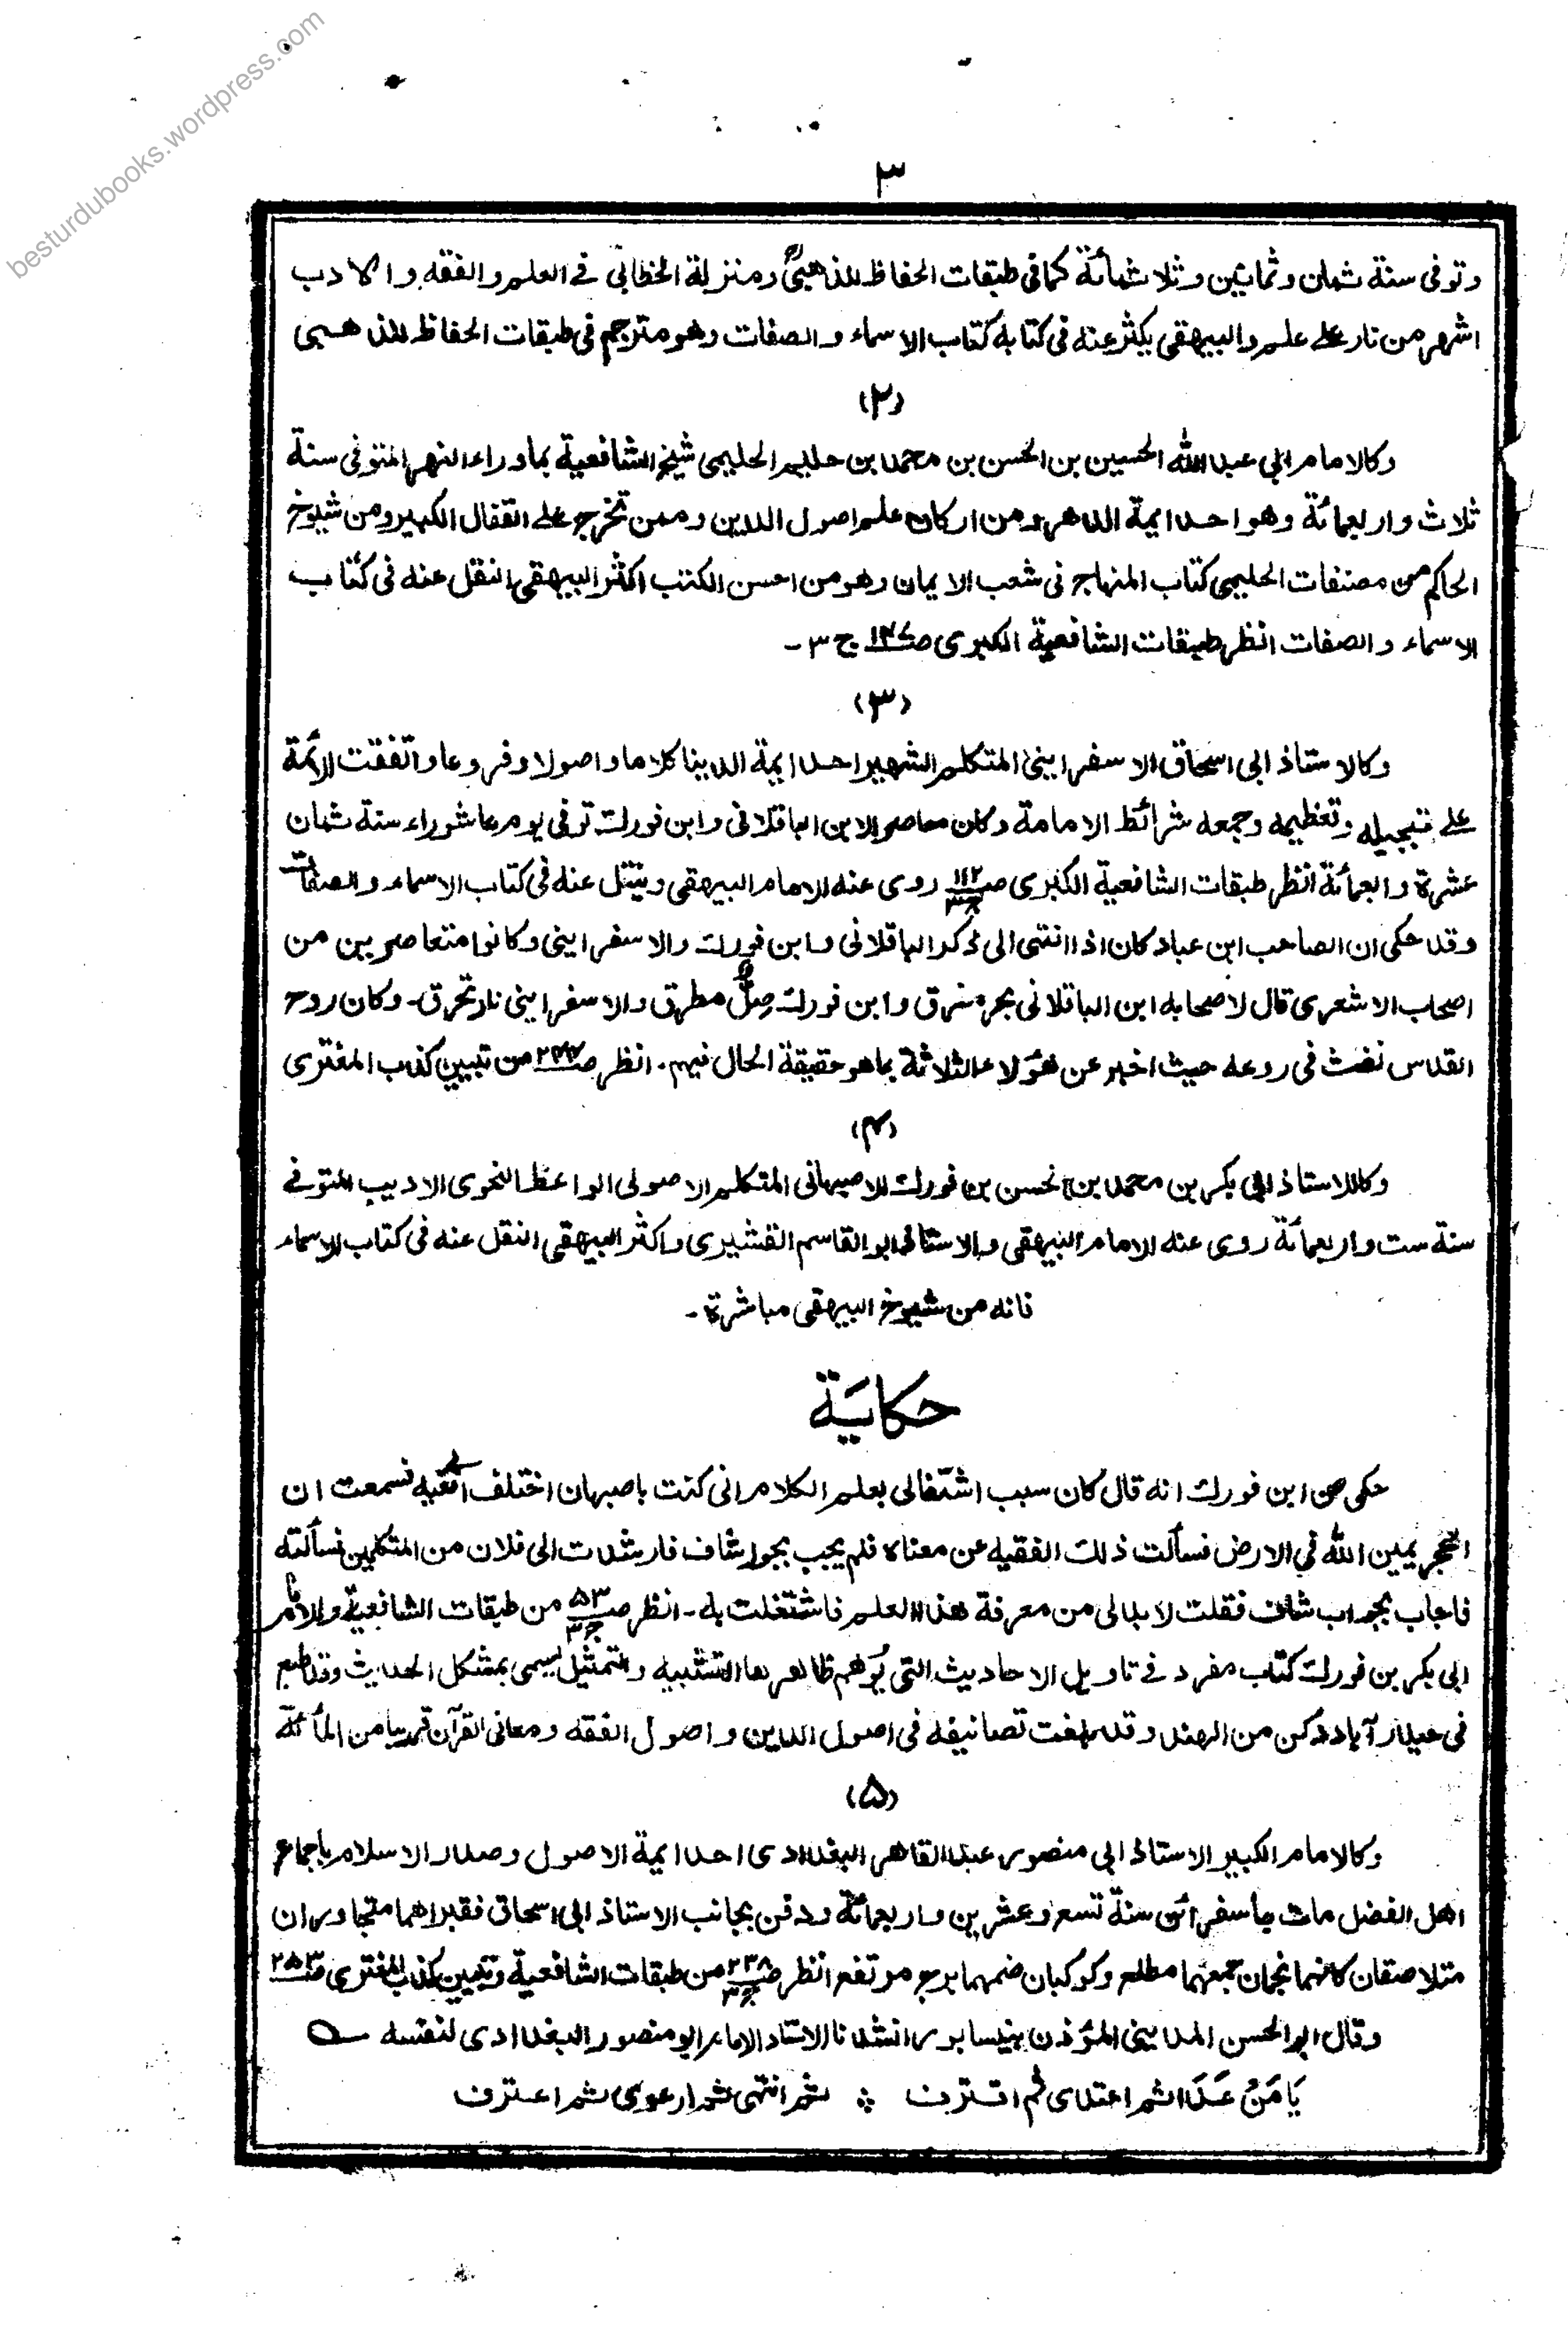 besturdubooks.wordpress.com
٣
وتوفى سنة ثمان وثمانين وثلاثمائة كما فى طبقات الحفاظ للذهبىؒ ومنزلة الخطابى فى العلم والفقه والادب
اشهر من نار على علم والبيهقى يكثر عنه فى كتابه كتاب الاسماء والصفات وهو مترجم فى طبقات الحفاظ للذهبى
(٢)
وكالامام ابى عبد الله الحسين بن الحسن بن محمد بن حليم الحليمى شيخ الشافعية بماوراء النهر المتوفى سنة
ثلاث واربعمائة وهو احد ايمة الدهر ومن اركان علم اصول الدين وممن تخرج على القفال الكبير ومن شيوخ
الحاكم من مصنفات الحليمى كتاب المنهاج فى شعب الايمان وهو من احسن الكتب اكثر البيهقى النقل عنه فى كتاب
الاسماء والصفات انظر طبقات الشافعية الكبرى صـ١٤٧ ج ٣ ـ
(٣)
وكالاستاذ ابى اسحاق الاسفراينى المتكلم الشهير احد ايمة الدينا كلاما واصولا وفروعا واتفقت الائمة
على تبجيله وتعظيمه وجمعه شرائط الامامة وكان معاصرا لابن الباقلانى وابن فورك توفى يوم عاشوراء سنة ثمان
عشرة واربعمائة انظر طبقات الشافعية الكبرى صـ١١٢ ج٣ روى عنه الامام البيهقى وينقل عنه فى كتاب الاسماء والصفات
وقد حكى ان الصاحب ابن عباد كان اذا انتهى الى ذكر الباقلانى وابن فورك والاسفراينى وكانوا متعاصرين من
اصحاب الاشعرى قال لاصحابه ابن الباقلانى بحر مغرق وابن فورك صِلٌّ مطرق والاسفراينى نار تحرق ـ وكان روح
القدس نفث فى روعه حيث اخبر عن هؤلاء الثلاثة بما هو حقيقة الحال فيهم ـ انظر صـ٢٤٤ من تبيين كذب المفترى
(٤)
وكالاستاذ ابى بكر بن محمد بن الحسن بن فورك الاصبهانى المتكلم الاصولى الواعظ النحوى الاديب المتوفى
سنة ست واربعمائة روى عنه الامام البيهقى والاستاذ ابو القاسم القشيرى واكثر البيهقى النقل عنه فى كتاب الاسماء
فانه من شيوخ البيهقى مباشرة ـ
حكايَة
حكى عن ابن فورك انه قال كان سبب اشتغالى بعلم الكلام انى كنت باصبهان اختلف الى فقيه فسمعت ان
الحجر يمين الله فى الارض فسألت ذلك الفقيه عن معناه فلم يجب بجواب شاف فارشدت الى فلان من المتكلمين فسألته
فاجاب بجواب شاف فقلت لا بد لى من معرفة هذا العلم فاشتغلت به ـ انظر صـ٥٣ ج٣ من طبقات الشافعية وللامام
ابى بكر بن فورك كتاب مفرد فى تاويل الاحاديث التى يُوهم ظاهرها التشبيه والتمثيل يسمى بمشكل الحديث وقد طبع
فى حيدر آباد دكن من الهند وقد بلغت تصانيفه فى اصول الدين واصول الفقه ومعانى القرآن قريبا من المائة
(٥)
وكالامام الكبير الاستاذ ابى منصور عبد القاهر البغدادى احد ايمة الاصول وصدر الاسلام باجماع
اهل الفضل مات باسفرائن سنة تسع وعشرين واربعمائة ودفن بجانب الاستاذ ابى اسحاق فقبراهما متجاوران
متلاصقان كانهما نجمان جمعهما مطلع وكوكبان ضمهما برج مرتفع انظر صـ٢٣٨ ج٣ من طبقات الشافعية وتبيين كذب المفترى صـ٢٥٣
وقال ابو الحسن المدينى المؤذن بنيسابور انشدنا الاستاد الامام ابو منصور البغدادى لنفسه
يَا مَنْ عَدَا ثم اعتدى ثم اقترف ؞ ثم انتهى ثم ارعوى ثم اعترف